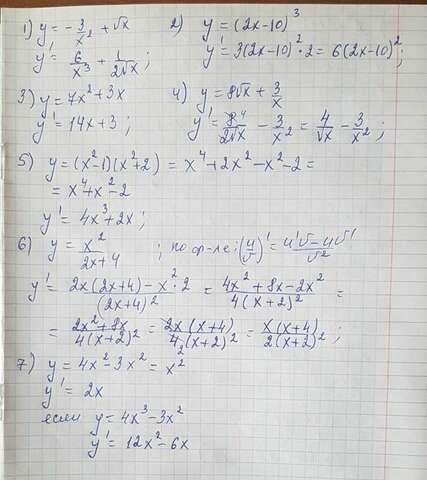 1) y = -3/x² + √x 2) y = (2x-10)³
y' = 6/x³ + 1/2√x ; y' = 3(2x-10)²·2 = 6(2x-10)²;
3) y = 7x² + 3x 4) y = 8√x + 3/x
y' = 14x + 3 ; y' = 8⁴/2√x - 3/x² = 4/√x - 3/x² ;
5) y = (x²-1)(x²+2) = x⁴ + 2x² - x² - 2 =
= x⁴ + x² - 2
y' = 4x³ + 2x ;
6) y = x²/2x+4 ; по ф-ле: (u/v)' = u'v - uv'/v²
y' = 2x(2x+4) - x²·2/(2x+4)² = 4x² + 8x - 2x²/4(x+2)² =
= 2x² + 8x/4(x+2)² = 2x(x+4)/4₂(x+2)² = x(x+4)/2(x+2)² ;
7) y = 4x² - 3x² = x²
y' = 2x
если y = 4x³ - 3x²
y' = 12x² - 6x